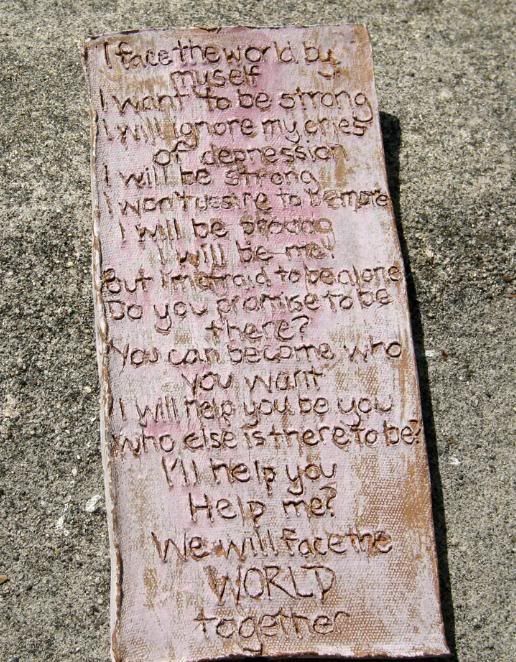 I face the world by
myself
I want to be strong
I will ignore my cries
of depression
I will be strong
I won't to be more
I will be proud
I will be me!
But I'm afraid to be alone
Do you promise to be
there?
You can become who
you want
I will help you be you
who else is there to be?
I'll help you
Help me?
We will face the
WORLD
together